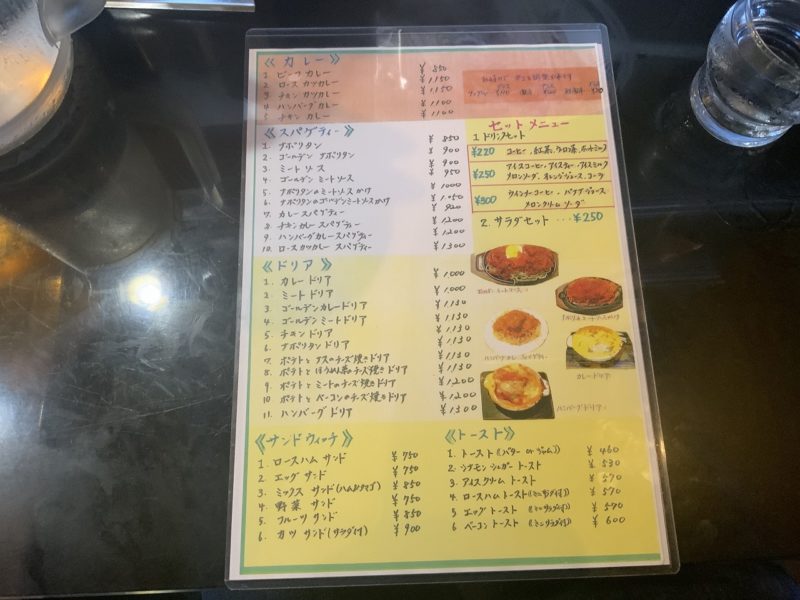 《 カレー 》
1. ビーフ カレー ¥ 850
2. ロース カツカレー ¥ 1150
3. チキン カツカレー ¥ 1150
4. ハンバーグカレー ¥ 1100
5. チキン カレー ¥ 1100
《 スパゲティー 》
1. ナポリタン ¥ 850
2. ゴールデン ナポリタン ¥ 900
3. ミート ソース ¥ 900
4. ゴールデン ミートソース ¥ 950
5. ナポリタンのミートソースかけ ¥ 1000
6. ナポリタンのゴールデンミートソースかけ ¥ 1,050
7. カレー スパゲティー ¥ 920
8. チキンカレー スパゲティー ¥ 1200
9. ハンバーグカレースパゲティー ¥ 1200
10. ロースカツカレー スパゲティー ¥ 1300
《 ドリア 》
1. カレー ドリア ¥ 1000
2. ミート ドリア ¥ 1000
3. ゴールデンカレードリア ¥ 1130
4. ゴールデンミートドリア ¥ 1130
5. チキンドリア ¥ 1130
6. ナポリタンドリア ¥ 1130
7. ポテトと ナスのチーズ焼きドリア ¥ 1130
8. ポテトと ほうれん草のチーズ焼きドリア ¥ 1130
9. ポテトと ミートのチーズ焼ドリア ¥ 1200
10. ポテトと ベーコンのチーズ焼ドリア ¥ 1200
11. ハンバーグ ドリア ¥ 1300
《サンドウィッチ》
1. ロースハム サンド ¥ 750
2. エッグ サンド ¥ 750
3. ミックス サンド(ハム&タマゴ) ¥ 850
4. 野菜 サンド ¥ 750
5. フルーツ サンド ¥ 850
6. カツ サンド(サラダ付) ¥ 900
セット メニュー
1. ドリンクセット
¥220 コーヒー、紅茶、
¥250 アイスコーヒー、アイスティー、アイスミルク
メロンソーダ、オレンジジュース、コーラ
¥300 ウインナーコーヒー、バナナジュース
メロンクリームソーダ
2. サラダセット ... ¥250
カレードリア
ハンバーグドリア
《トースト》
1. トースト(バター or ジャム) ¥ 460
2. シナモン シュガー トースト ¥ 530
3. アイスクリーム トースト ¥ 570
4. ロースハムトースト(ミニサラダ付) ¥ 570
5. エッグ トースト (ミニサラダ付) ¥ 570
6. ベーコン トースト (ミニサラダ付) ¥ 600